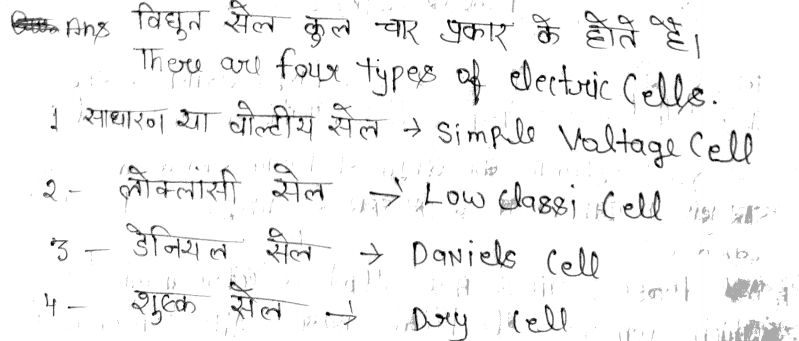 Ans विधुत सेल कुल चार प्रकार के होते है।
There are four types of electric Cells.
1 साधारण या वोल्टीय सेल → Simple Valtage Cell
2 - लोक्लांसी सेल → Low classi Cell
3 - डेनियल सेल → Daniels Cell
4 - शुष्क सेल → Dry Cell